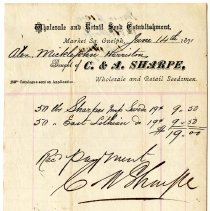 Wholesale and Retail Seed Establishment,
Market Sq. Guelph, June 14th 1871
Bought of C. & A. SHARPE,
Wholesale and Retail Seedsmen.
Catalogues sent on Application
50 lbs Sharpes Imp Swede 19¢ 9.50
50 " East Lothian do 19¢ 9.50
$19.00
Rec'd Payment
C W Sharpe